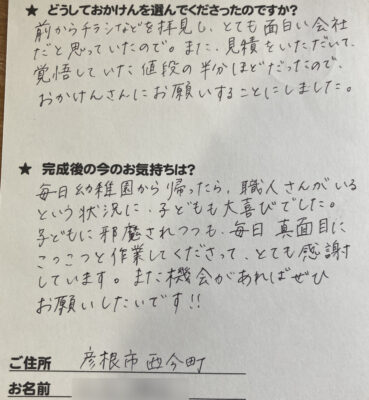 ★ どうしておかけんを選んでくださったのですか?
前からチラシなどを拝見し、とても面白い会社
だと思っていたので。また、見積をいただいて、
覚悟していた値段の半分ほどだったので、
おかけんさんにお願いすることにしました。
★ 完成後の今のお気持ちは?
毎日幼稚園から帰ったら、職人さんがいる
という状況に、子どもも大喜びでした。
子どもに邪魔されつつも、毎日真面目に
こつこつと作業してくださって、とても感謝
しています。また機会があればぜひ
お願いしたいです!!
ご住所 彦根市西今町
お名前